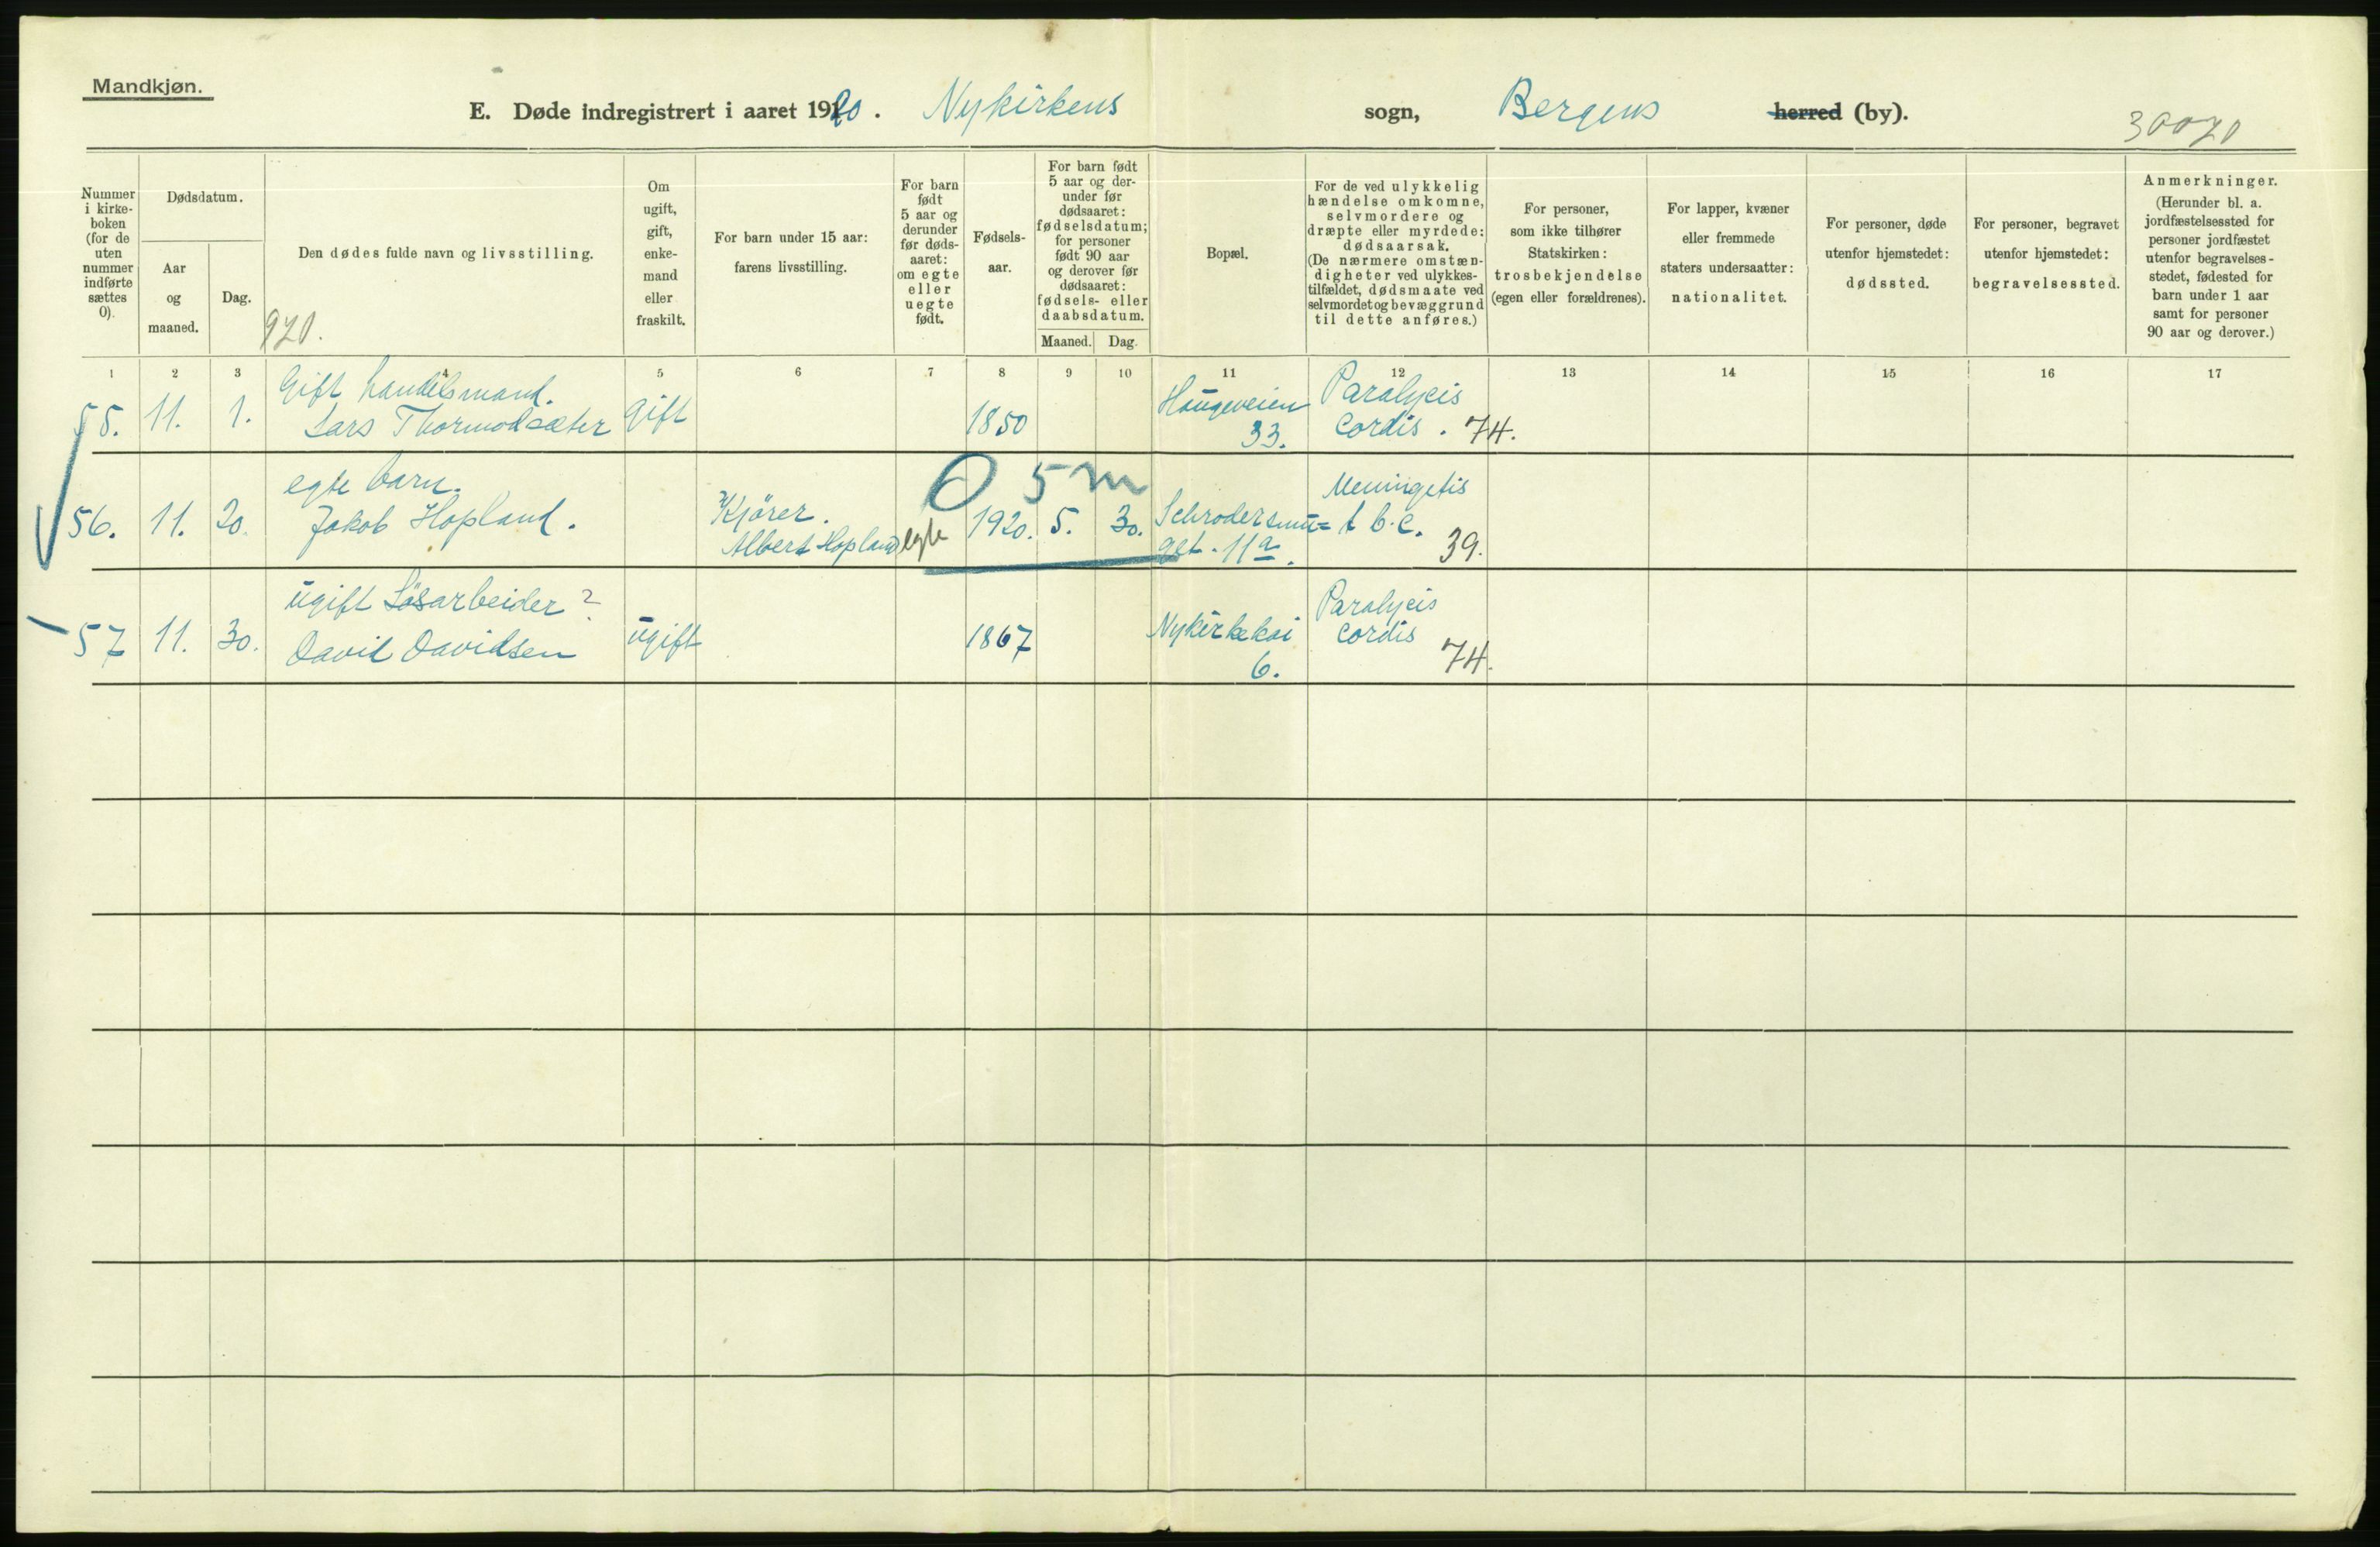 Mandkjøn.
E. Døde indregistrert i aaret 1920. Nykirkens sogn, Bergens herred (by).
30070
Nummer i kirke-boken (for de uten nummer indførte sættes 0).
Dødsdatum.
Aar og maaned.
Dag.
Den dødes fulde navn og livsstilling.
920.
Om ugift, gift, enke-mand eller fraskilt.
For barn under 15 aar: farens livsstilling.
For barn født 5 aar og derunder før døds-aaret: om egte eller uegte født.
Fødsels-aar.
For barn født 5 aar og der-under før dødsaaret: fødselsdatum; for personer født 90 aar og derover før dødsaaret: fødsels- eller daabsdatum.
Maaned. Dag.
Bopæl.
For de ved ulykkelig hændelse omkomne, selvmordere og dræpte eller myrdede: dødsaarsak. (De nærmere omstæn-digheter ved ulykkes-tilfældet, dødsmaate ved selvmordet og bevæggrund til dette anføres.)
For personer, som ikke tilhører Statskirken: trosbekjendelse (egen eller forældrenes).
For lapper, kvæner eller fremmede staters undersaatter: nationalitet.
For personer, døde utenfor hjemstedet: dødssted.
For personer, begravet utenfor hjemstedet: begravelsessted.
Anmerkninger. (Herunder bl. a. jordfæstelsessted for personer jordfæstet utenfor begravelses-stedet, fødested for barn under 1 aar samt for personer 90 aar og derover.)
1 2 3 4 5 6 7 8 9 10 11 12 13 14 15 16 17
Gift handelsmand. Haugeveien Paralycis
55. 11. 1. Lars Thormodsæter Gift 1850 33. Cordis. 74.
0 5 m
egte barn. Kjörer. Meningetis
56. 11. 20. Jakob Hopland. Albert Hopland egte 1920. 5. 30. Schrodersmu= t b.c.
get. 11a. 39.
ugift Løsarbeider ? Paralycis
57 11. 30. David Davidsen ugift 1867 Nykirkekai Cordis
6. 74.